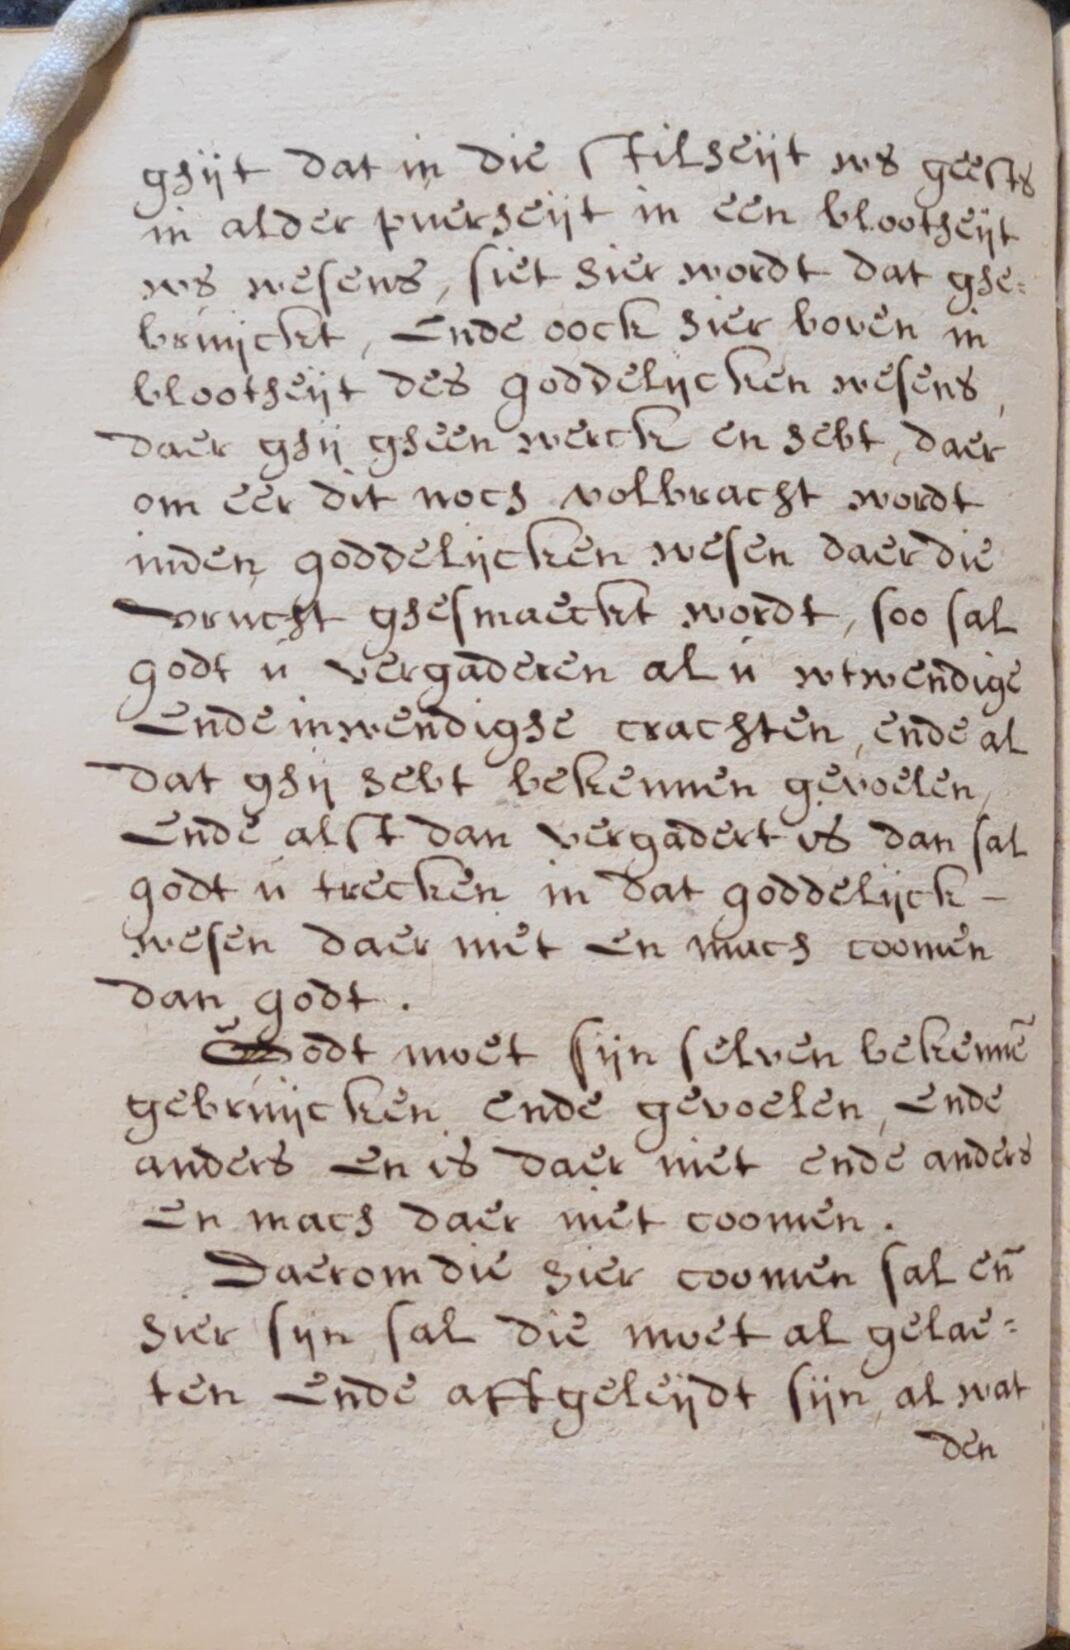 ghijt dat in die stilheijt ws geests
in alder puerheijt in een blootheijt
ws wesens, siet hier wordt dat ghe=
bruijckt, Ende oock hier boven in
blootheijt des goddelijcken wesens,
daer ghij gheen werck en hebt, daer
om eer dit noch volbracht wordt
inden goddelijcken wesen daer die
vrucht ghesmaeckt wordt, soo sal
godt u vergaderen al u wtwendige
Ende inwendighe crachten, ende al
dat ghij hebt bekennen gevoelen,
Ende alst dan vergadert is dan sal
godt u trecken in dat goddelijck-
wesen daer niet En mach coomen
dan godt.
Godt moet sijn selven bekennē
gebruijcken ende gevoelen, Ende
anders En is daer niet ende anders
En mach daer niet coomen.
Daerom die hier coomen sal en̄
hier sijn sal die moet al gelae=
ten Ende affgeleijdt sijn, al wat
den